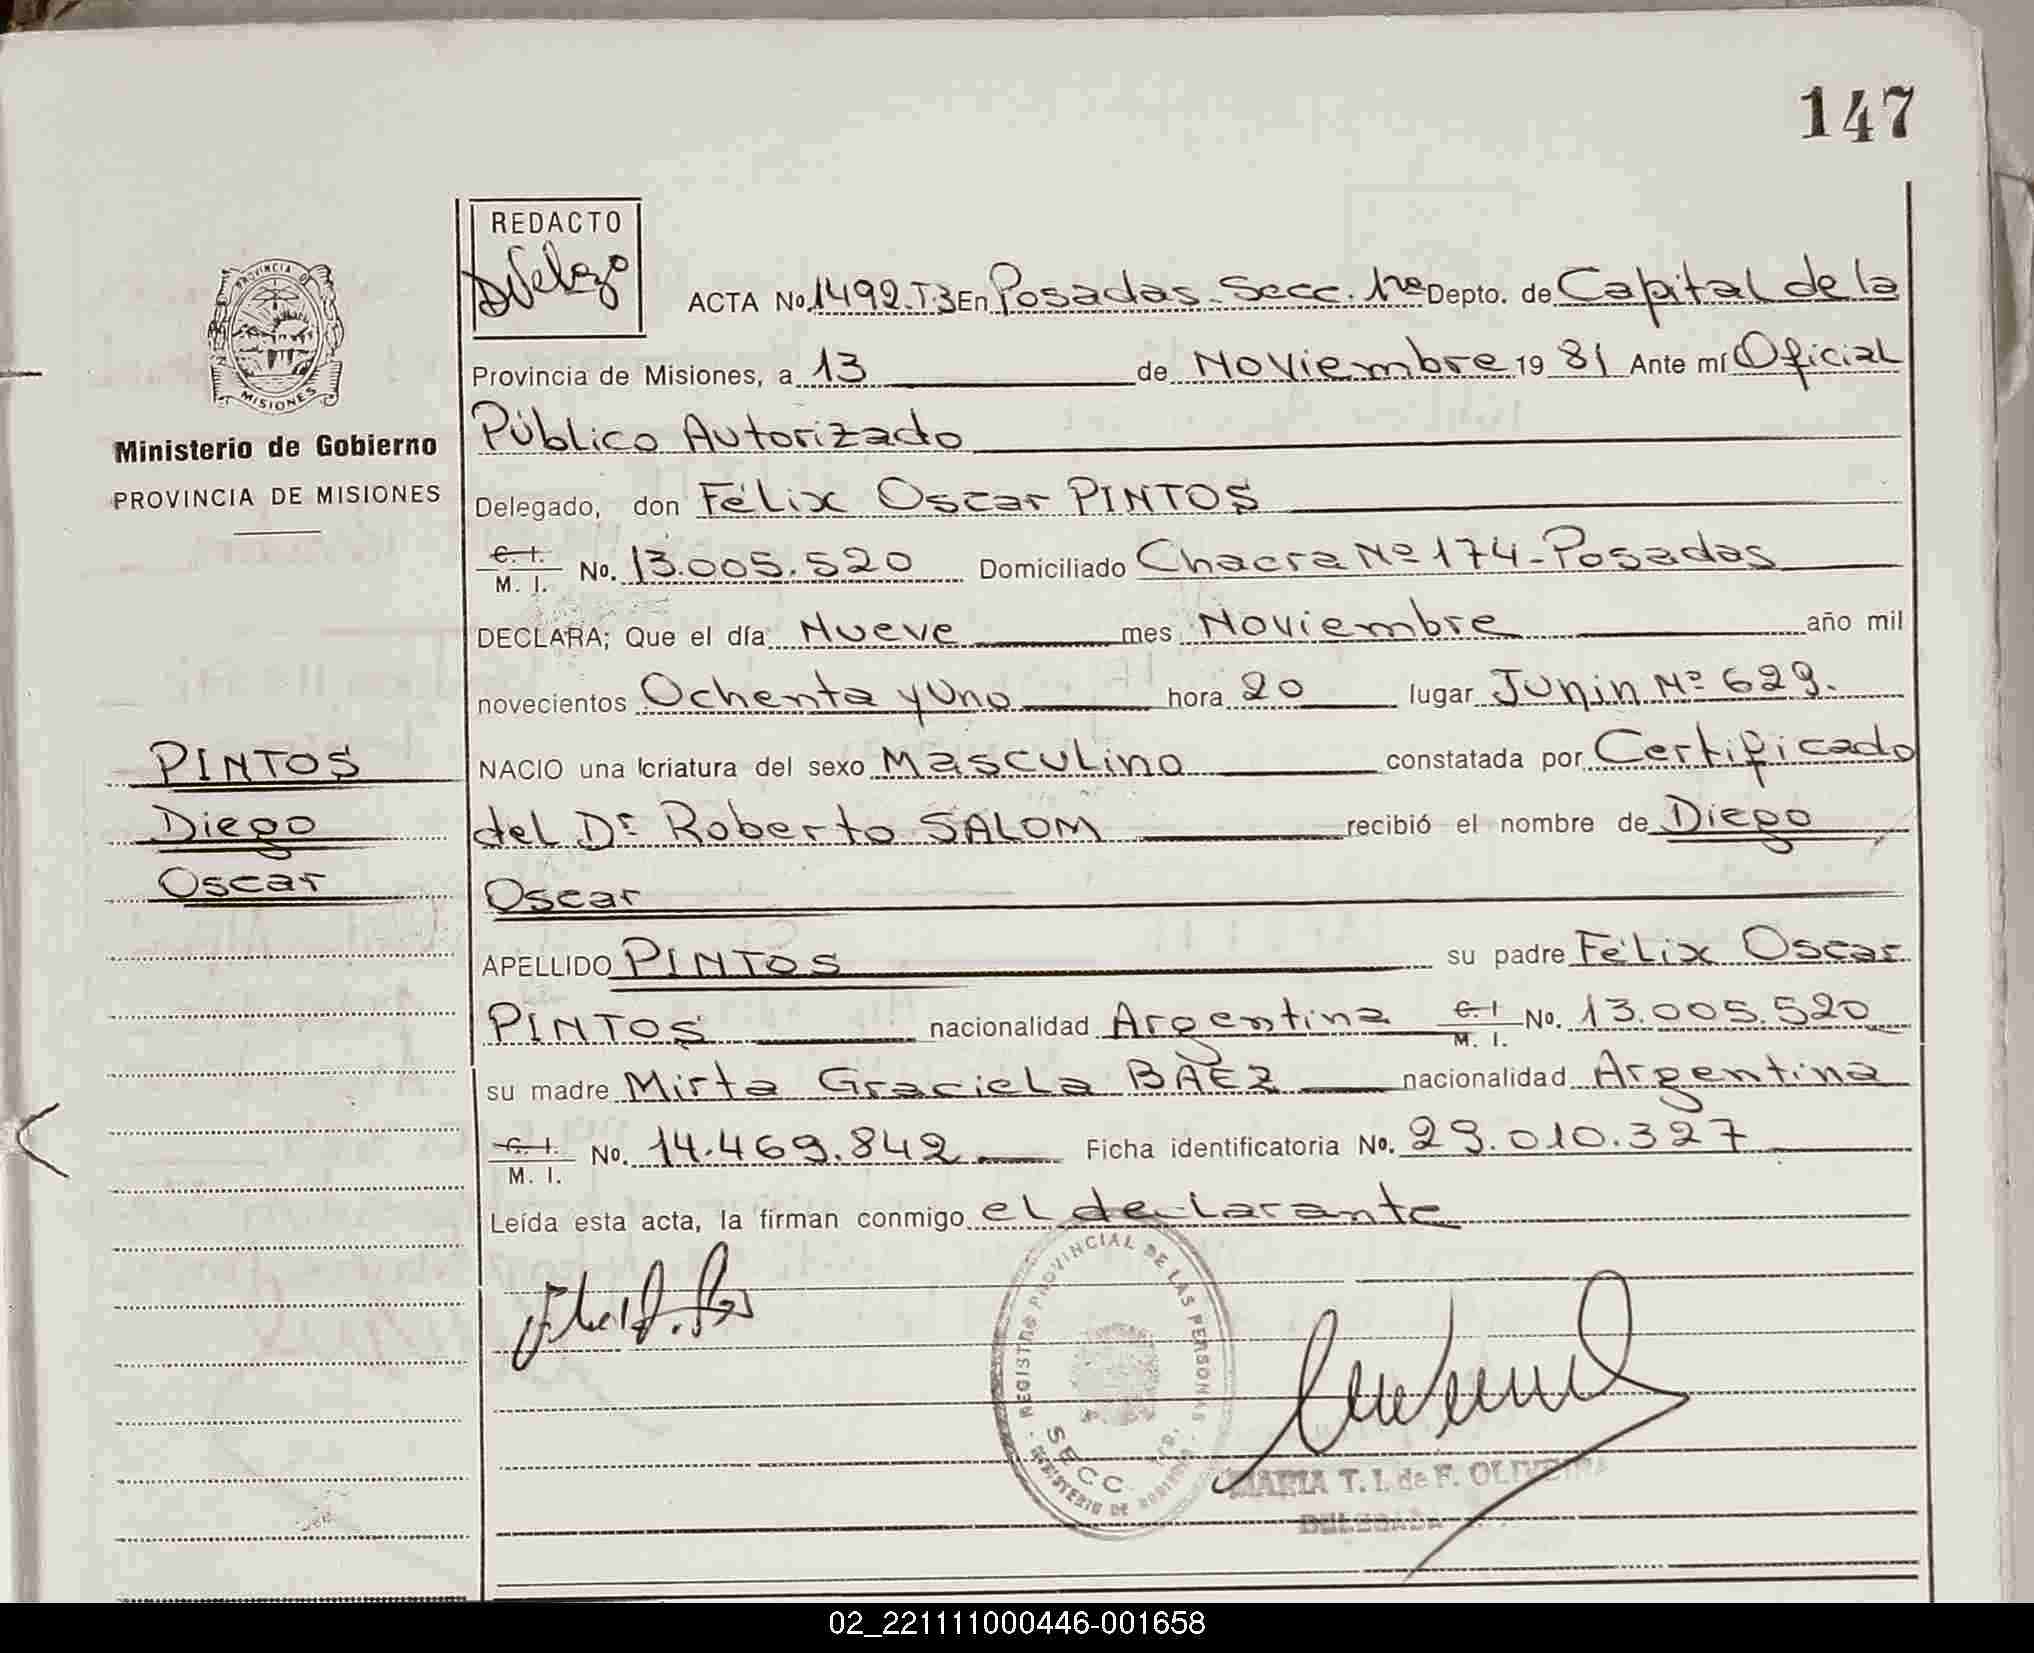 147
REDACTO
PROVINCIA DE
MISIONES
ACTA No. 1492.T3 En Posadas. Secc. 1ra Depto. de Capital de la
Provincia de Misiones, a 13 de Noviembre 19 81 Ante mí Oficial
Ministerio de Gobierno
Público Autorizado
PROVINCIA DE MISIONES
Delegado, don Félix Oscar PINTOS
C. I.
M. I. No. 13.005.520 Domiciliado Chacra Nº 174-Posadas
DECLARA; Que el día Nueve mes Noviembre año mil
novecientos Ochenta y Uno hora 20 lugar Junin Nº 629.
PINTOS
NACIO una criatura del sexo Masculino constatada por Certificado
Diego
del Dr Roberto SALOM recibió el nombre de Diego
Oscar
Oscar
APELLIDO PINTOS su padre Félix Oscar
PINTOS nacionalidad Argentina C. I. M. I. No. 13.005.520
su madre Mirta Graciela BÁEZ nacionalidad Argentina
C. I.
M. I. No. 14.469.842 Ficha identificatoria No. 29.010.327
Leída esta acta, la firman conmigo el declarante
REGISTRO PROVINCIAL DE LAS PERSONAS
SECC.
MINISTERIO DE GOBIERNO
MARIA T. I. de F. OLIVEIRA
DELEGADA
02_221111000446-001658